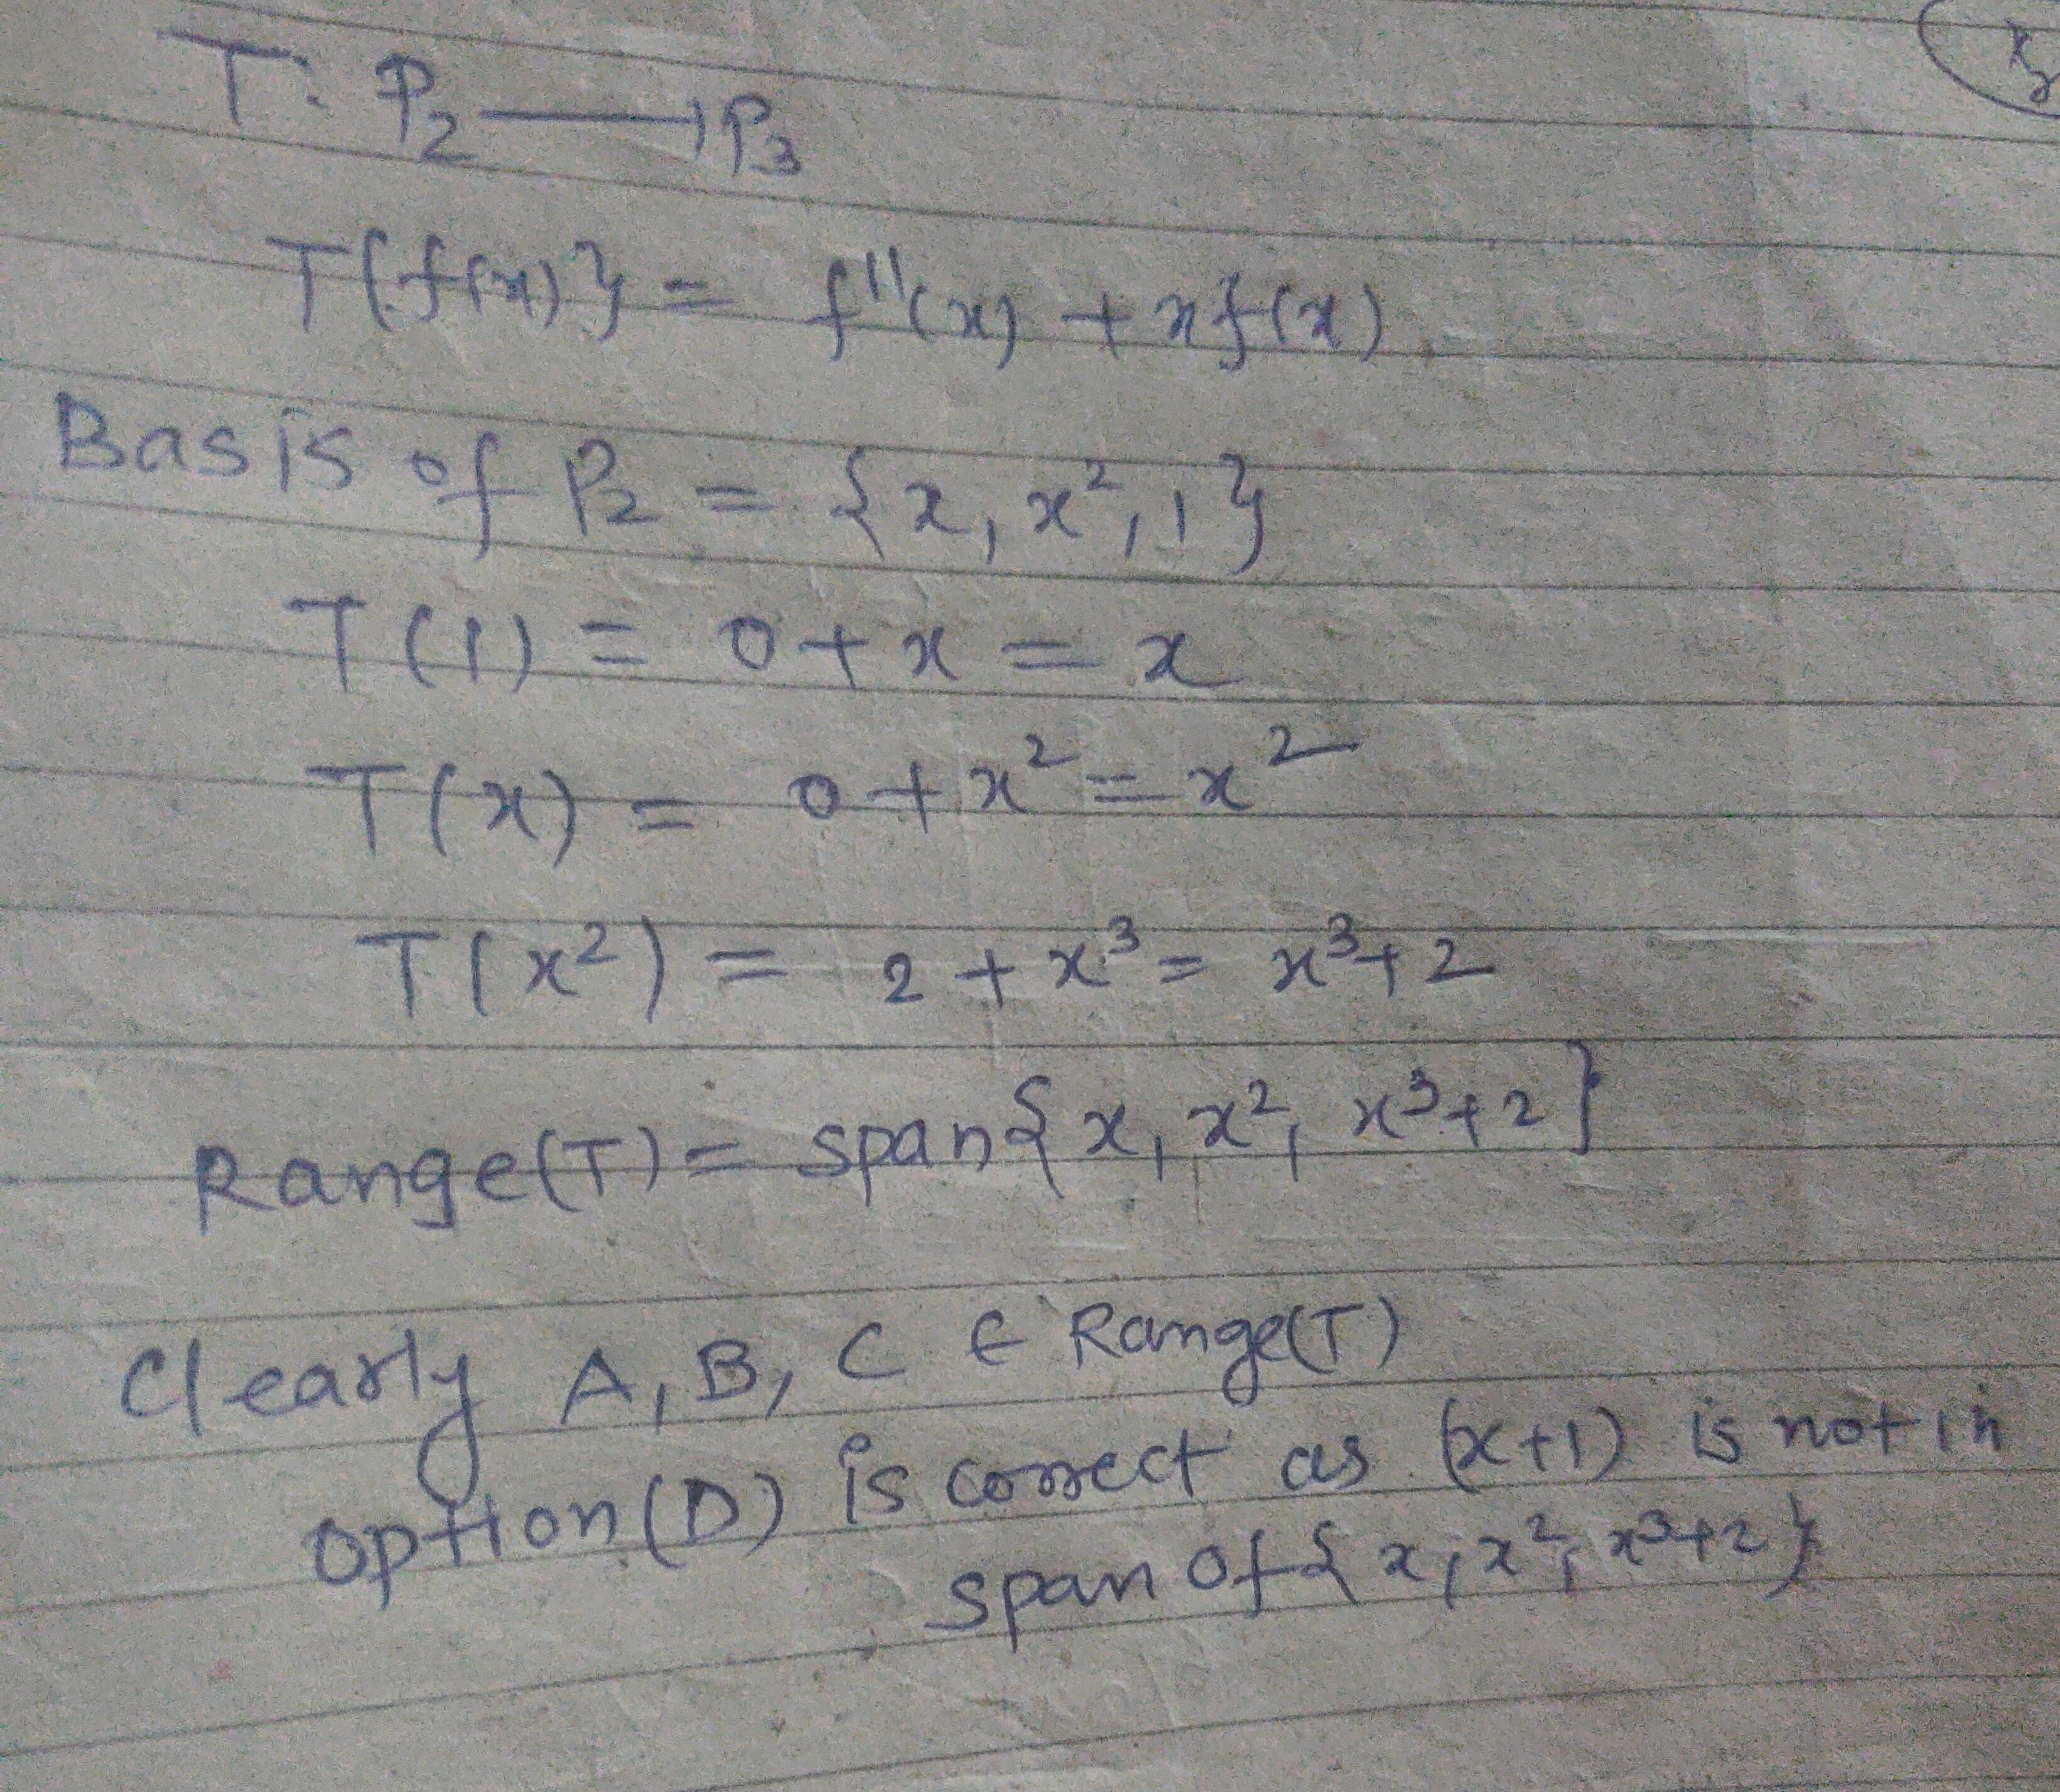 T: P₂ → P₃
T{f(x)} = f''(x) + xf(x)
Basis of P₂ = {x, x², 1}
T(1) = 0 + x = x
T(x) = 0 + x² = x²
T(x²) = 2 + x³ = x³+2
Range(T) = span{x, x², x³+2}
Clearly A, B, C ∈ Range(T)
option (D) is correct as (x+1) is not in
span of {x, x², x³+2}